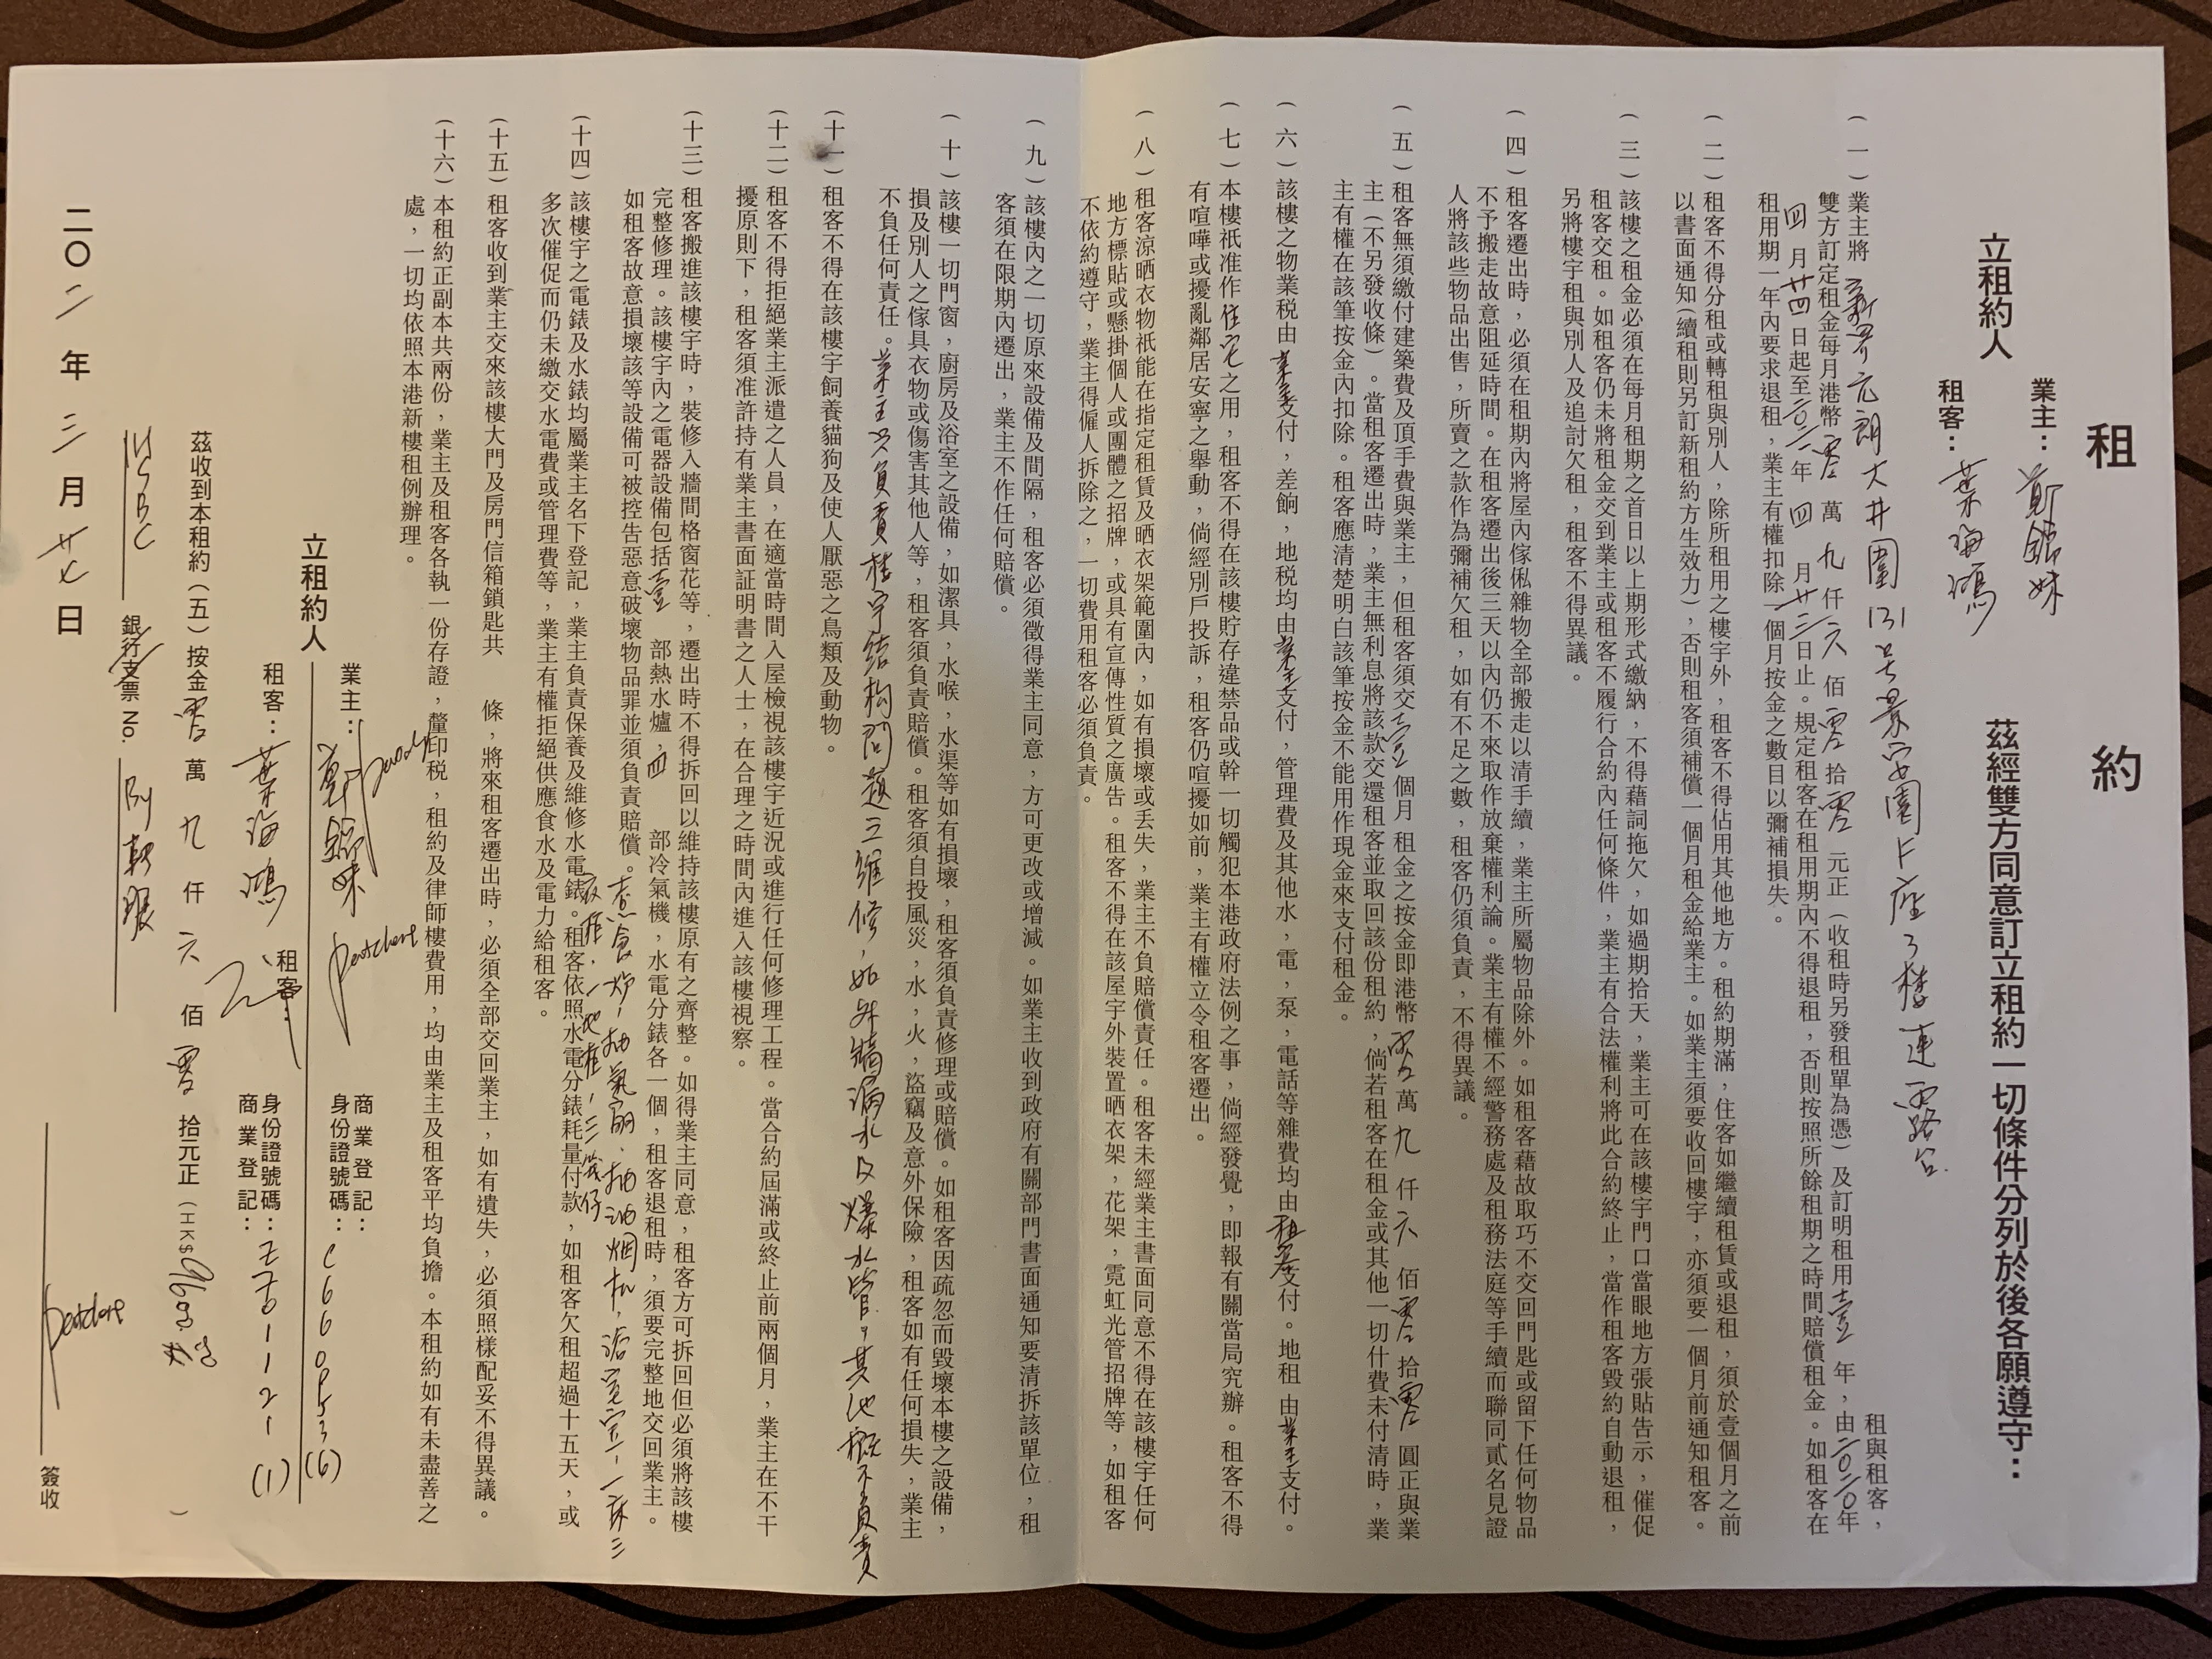 租約
立租約人
業主：鄭鍚妹
租客：葉海鴻
茲經雙方同意訂立租約一切條件分列於後各願遵守：
(一)業主將新界元朗大井圍131号景安園F座3樓連露台 租與租客，
雙方訂定租金每月港幣零萬九仟六佰零拾零元正（收租時另發租單為憑）及訂明租用壹年，由二〇二〇年
四月廿四日起至二〇二一年四月廿三日止。規定租客在租用期內不得退租，否則按照所餘租期之時間賠償租金。如租客在
租用期一年內要求退租，業主有權扣除一個月按金之數目以彌補損失。
(二)租客不得分租或轉租與別人，除所租用之樓宇外，租客不得佔用其他地方。租約期滿，住客如繼續租賃或退租，須於壹個月之前
以書面通知(續租則另訂新租約方生效力)，否則租客須補償一個月租金給業主。如業主須要收回樓宇，亦須要一個月前通知租客。
(三)該樓之租金必須在每月租期之首日以上期形式繳納，不得藉詞拖欠，如過期拾天，業主可在該樓宇門口當眼地方張貼告示，催促
租客交租。如租客仍未將租金交到業主或租客不履行合約內任何條件，業主有合法權利將此合約終止，當作租客毀約自動退租，
另將樓宇租與別人及追討欠租，租客不得異議。
(四)租客遷出時，必須在租期內將屋內傢俬雜物全部搬走以清手續，業主所屬物品除外。如租客藉故取巧不交回門匙或留下任何物品
不予搬走故意阻延時間。在租客遷出後三天以內仍不來取作放棄權利論。業主有權不經警務處及租務法庭等手續而聯同貳名見證
人將該些物品出售，所賣之款作為彌補欠租，如有不足之數，租客仍須負責，不得異議。
(五)租客無須繳付建築費及頂手費與業主，但租客須交壹個月 租金之按金即港幣零萬九仟六佰零拾零圓正與業
主（不另發收條）。當租客遷出時，業主無利息將該款交還租客並取回該份租約，倘若租客在租金或其他一切什費未付清時，業
主有權在該筆按金內扣除。租客應清楚明白該筆按金不能用作現金來支付租金。
(六)該樓之物業税由業主支付，差餉，地税均由業主支付，管理費及其他水，電，泵，電話等雜費均由租客支付。地租 由業主支付。
(七)本樓衹准作住宅之用，租客不得在該樓貯存違禁品或幹一切觸犯本港政府法例之事，倘經發覺，即報有關當局究辦。租客不得
有喧嘩或擾亂鄰居安寧之舉動，倘經別戶投訴，租客仍喧擾如前，業主有權立令租客遷出。
(八)租客涼晒衣物衹能在指定租賃及晒衣架範圍內，如有損壞或丟失，業主不負賠償責任。租客未經業主書面同意不得在該樓宇任何
地方標貼或懸掛個人或團體之招牌，或具有宣傳性質之廣告。租客不得在該屋宇外裝置晒衣架，花架，霓虹光管招牌等，如租客
不依約遵守，業主得僱人拆除之，一切費用租客必須負責。
(九)該樓內之一切原來設備及間隔，租客必須徵得業主同意，方可更改或增減。如業主收到政府有關部門書面通知要清拆該單位，租
客須在限期內遷出，業主不作任何賠償。
(十)該樓一切門窗，廚房及浴室之設備，如潔具，水喉，水渠等如有損壞，租客須負責修理或賠償。如租客因疏忽而毀壞本樓之設備，
損及別人之傢具衣物或傷害其他人等，租客須負責賠償。租客須自投風災，水，火，盜竊及意外保險，租客如有任何損失，業主
不負任何責任。業主只負責樓宇結构問題之維修，如外牆漏水及爆水管，其他概不負責
(十一)租客不得在該樓宇飼養貓狗及使人厭惡之鳥類及動物。
(十二)租客不得拒絕業主派遣之人員，在適當時間入屋檢視該樓宇近況或進行任何修理工程。當合約屆滿或終止前兩個月，業主在不干
擾原則下，租客須准許持有業主書面証明書之人士，在合理之時間內進入該樓視察。
(十三)租客搬進該樓宇時，裝修入牆間格窗花等，遷出時不得拆回以維持該樓原有之齊整。如得業主同意，租客方可拆回但必須將該樓
完整修理。該樓宇內之電器設備包括壹 部熱水爐，四 部冷氣機，水電分錶各一個，租客退租時，須要完整地交回業主。
如租客故意損壞該等設備可被控告惡意破壞物品罪並須負責賠償。煮食炉，抽氣扇，抽油烟机，浴室宝，一床三
(十四)該樓宇之電錶及水錶均屬業主名下登記，業主負責保養及維修水電錶。租客依照水電分錶耗量付款，如租客欠租超過十五天，或
多次催促而仍未繳交水電費或管理費等，業主有權拒絕供應食水及電力給租客。
(十五)租客收到業主交來該樓大門及房門信箱鎖匙共 條，將來租客遷出時，必須全部交回業主，如有遺失，必須照樣配妥不得異議。
(十六)本租約正副本共兩份，業主及租客各執一份存證，釐印税，租約及律師樓費用，均由業主及租客平均負擔。本租約如有未盡善之
處，一切均依照本港新樓租例辦理。
立租約人
業主：鄭鍚妹
商業登記：
身份證號碼：C660953(6)
租客：葉海鴻
租客：
身份證號碼：Z761121(1)
商業登記：
茲收到本租約（五）按金零萬九仟六佰零拾元正（HK$9600.）
HSBC 銀行支票 No. By 転賬
簽收
二〇二一年三月廿七日